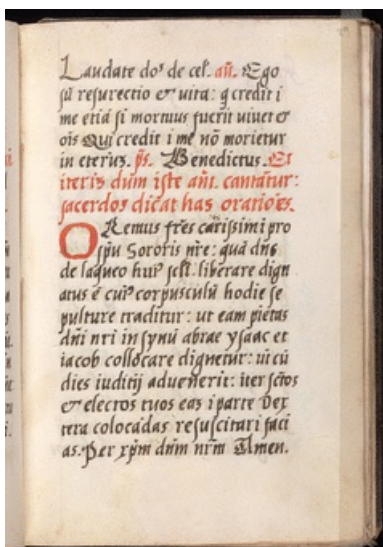 Laudate doꝰ de cel̄. añ. Ego
sū resurectio et uita: q̄ credit i
me etiā si mortuus fuerit uiuet et
oīs Qui credit i me nō morietur
in eternꝫ. ps̄. Benedictus. Et
iteris dum iste añt. cantātur:
sacerdos dicat has oratiōes.
ORemus fr̄es carissimi pro
spū Sororis nr̄e: quā dn̄s
de laqueo huiꝰ sclī. liberare dign
atus ē cuiꝰ corpusculū hodie se
pulture traditur: ut eam pietas
dn̄i nr̄i in synū abrae ysaac et
iacob collocare dignetur: ut cū
dies iuditij aduenerit: iter sc̄tos
et electos tuos eaꝫ i parte dex
tera colocādas resuscitari faci
as. Per xp̄m dn̄m nr̄m Amen.